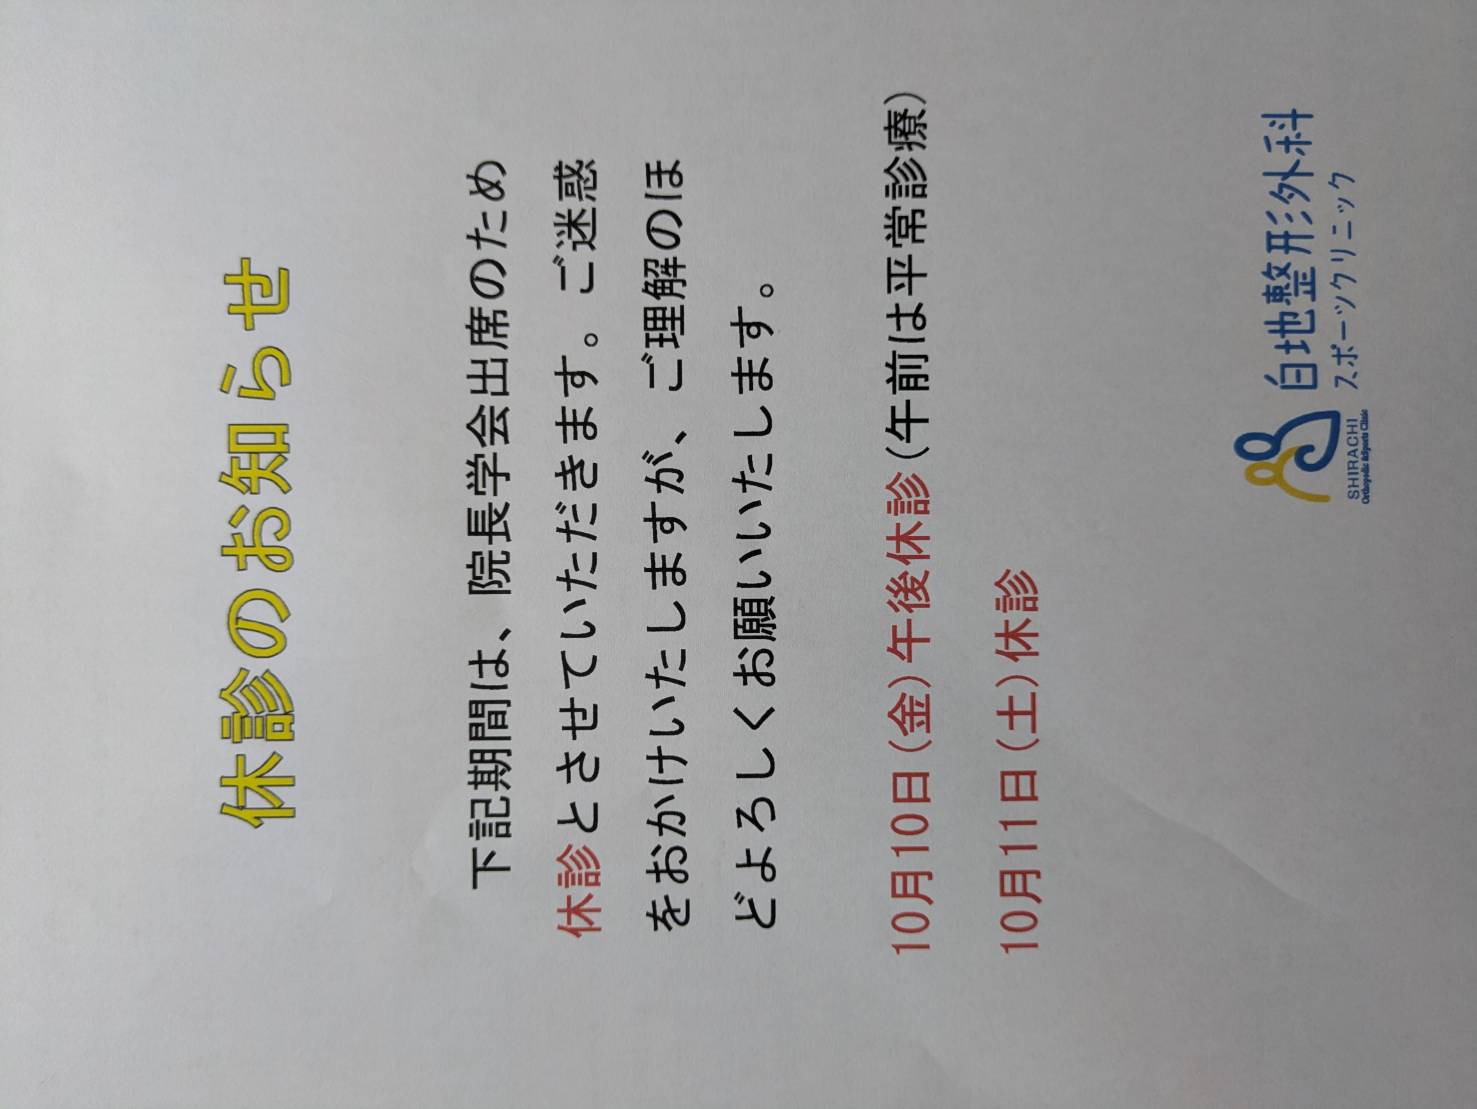 休診のお知らせ
下記期間は、院長学会出席のため
休診とさせていただきます。ご迷惑
をおかけいたしますが、ご理解のほ
どよろしくお願いいたします。
10月10日(金)午後休診(午前は平常診療)
10月11日(土)休診
白地整形外科
スポーツクリニック
SHIRACHI
Orthopedic &Sports Clinic